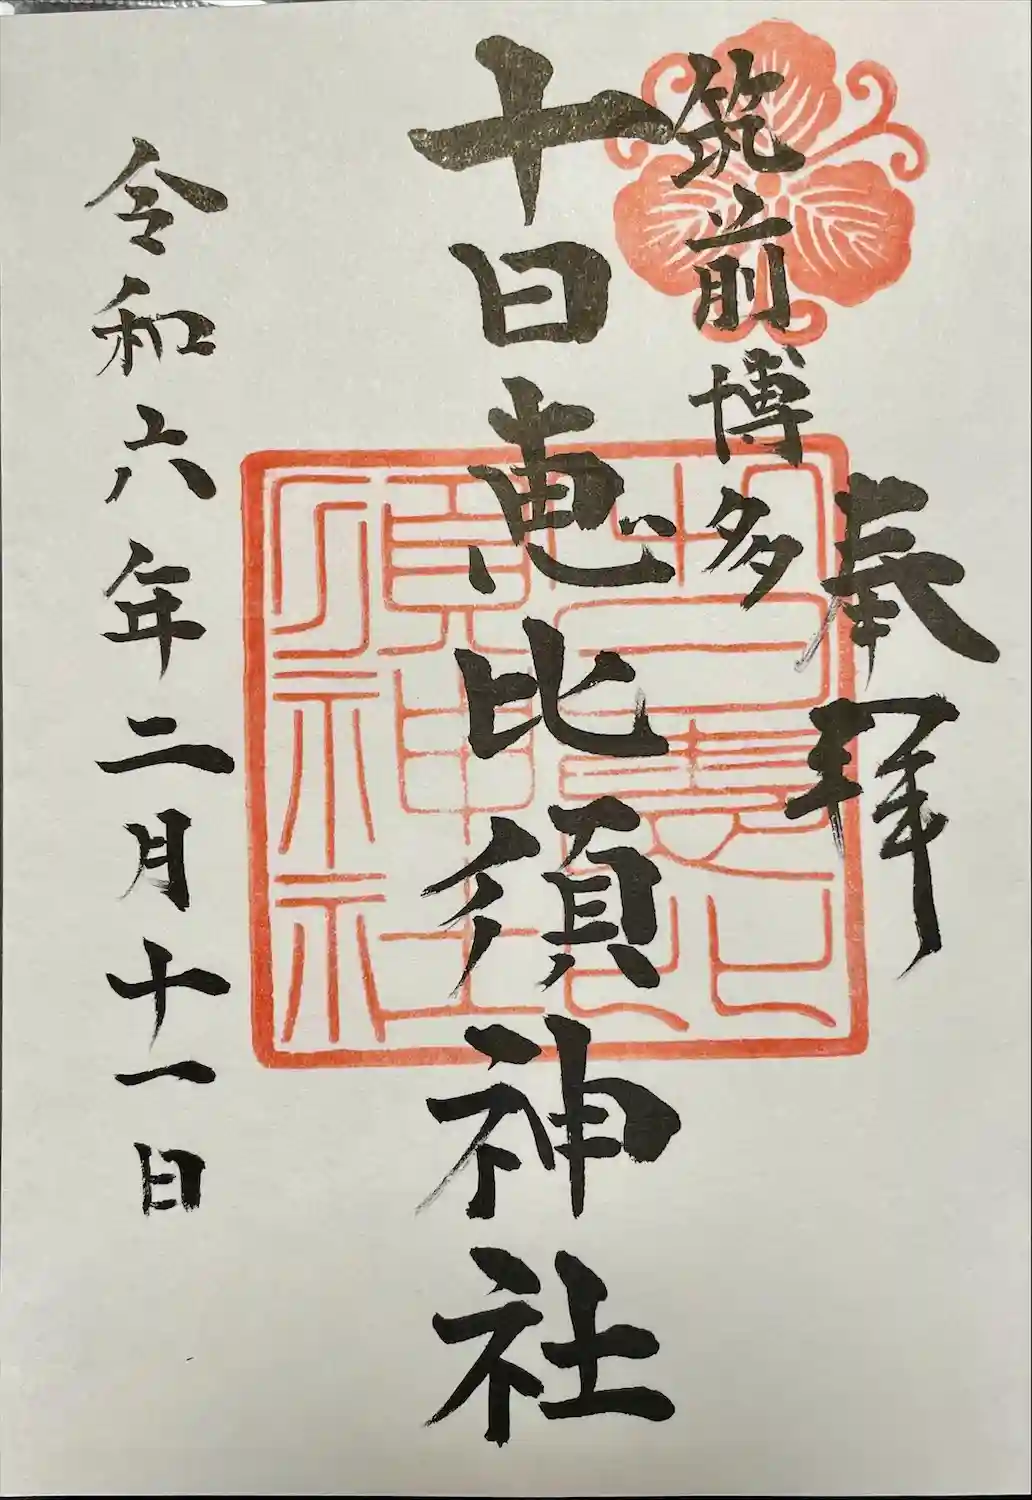 奉拝
筑前博多
十日恵比須神社
十日恵比須神社
令和六年二月十一日